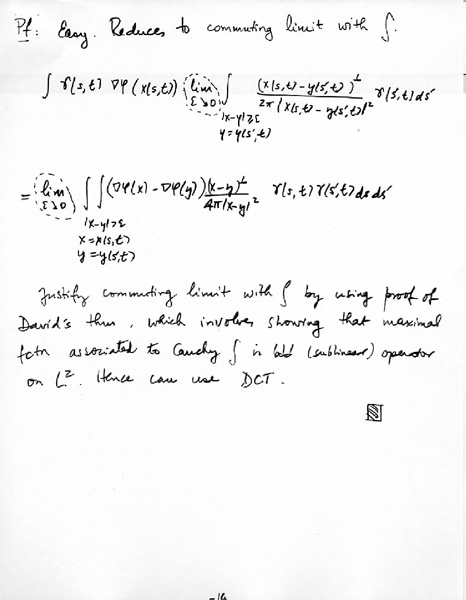 Pf: Easy. Reduces to commuting limit with ∫.
∫ γ(s,t) ∇φ(x(s,t)) (lim ε↓0) ∫ |x-y|≥ε y=y(s',t) (x(s,t)-y(s',t))^⊥ / 2π|x(s,t)-y(s',t)|² γ(s',t)ds'
= (lim ε↓0) ∫∫ |x-y|≥ε x=x(s,t) y=y(s',t) (∇φ(x)-∇φ(y)) (x-y)^⊥ / 4π|x-y|² γ(s,t)γ(s',t)dsds'
Justify commuting limit with ∫ by using proof of
David's thm, which involves showing that maximal
fctn associated to Cauchy ∫ is bdd (sublinear) operator
on L². Hence can use DCT.